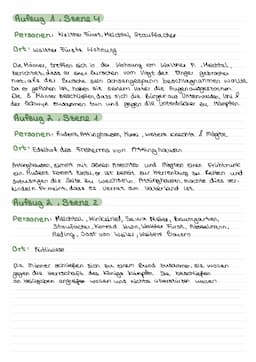 Aufzug 1, Szene 4
Personen: Walther Fürst, Melchtal, Stauffacher
Ort: Walther Fürsts Wohnung
Die Männer treffen sich in der Wohnung von Walther F. Melchtal,
berichtet, dass er einen Burschen vom Vogt den Finger gebrochen
hat, als der Bursche sein Ochsengespann beschlagnahmen wollte.
Da er geflohen ist, haben sie seinem Vater die Augen
Die 3 Männer beschließen, dass sich die Bürger aus Unterwalden, Uri &
der Schwyz zusammen tun und gegen die Unterdrücker zu kämpfen.
Aufzug 2, Szene 1
Personen: Rudenz, Attinghausen, Kuoni, weitere Knechte & Mägde
Ort: Edelhof des Freiherrn von Attinghausen
Attinghausen, nimmt mit seinen Knechten und Mägden einen Frühtrunk
ein. Rudenz kommt
deswegen die Seite zu wechseln. Attinghausen möchte dies ver-
hindern. Er meint, dass es Verrat am Vaterland ist.
Aufzug 2, Szene 2
Personen: Melchtal, Winkelried, Baumgarten,
Stauffacher, Konrad Hunn, Walther Fürst, Rösselmann,
Reding, Jost von Weiler, weitere Bauern
Ort: Rütliwiese
Die Männer schließen sich zu einem Bund zusammen. Sie wollen
gegen die Herrschaft des Königs kämpfen. Sie beschließen
an Heiligabend angreifen wollen und nichts überstürzen wollen.